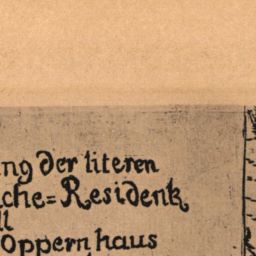 ng der titeren
che=Residentz
ll
Oppern haus